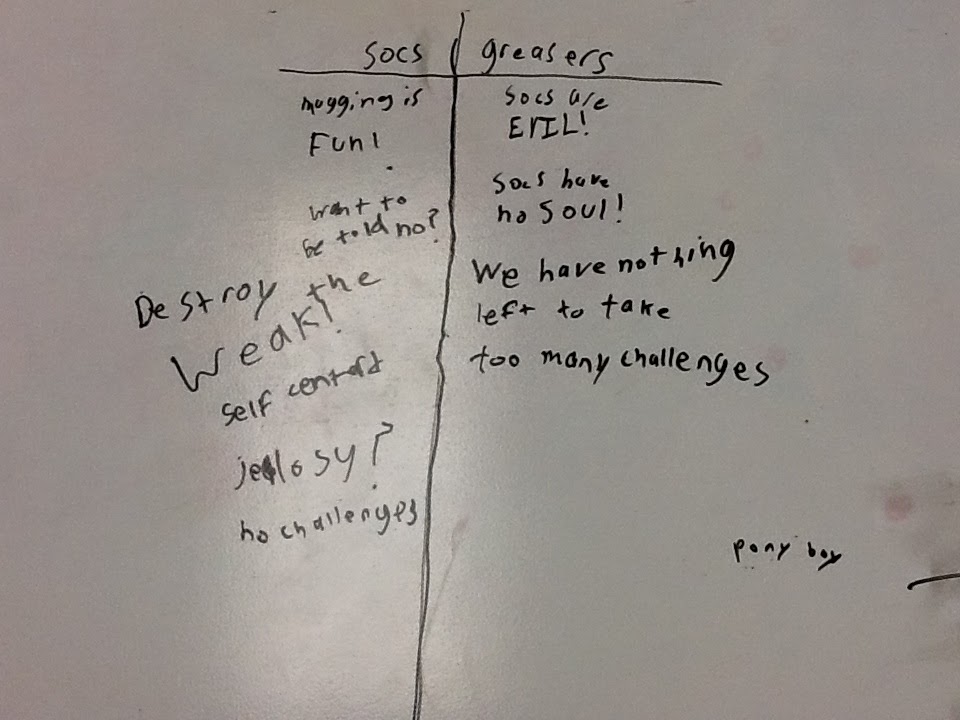 socs
mugging is
Fun!
want to
be told no?
Destroy the
Weak!
self centerd
jealosy?
no challenges
greasers
socs are
EVIL!
socs have
no soul!
We have nothing
left to take
too many challenges
pony boy